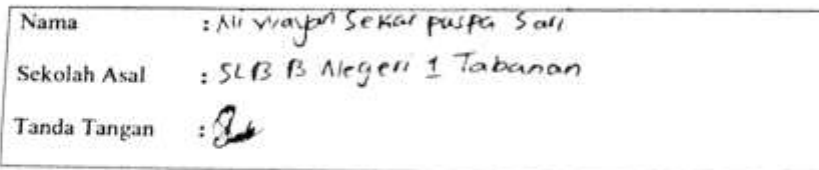 Nama : Ni Wayan Sekar puspa Sari
Sekolah Asal : SLB B Negeri 1 Tabanan
Tanda Tangan :